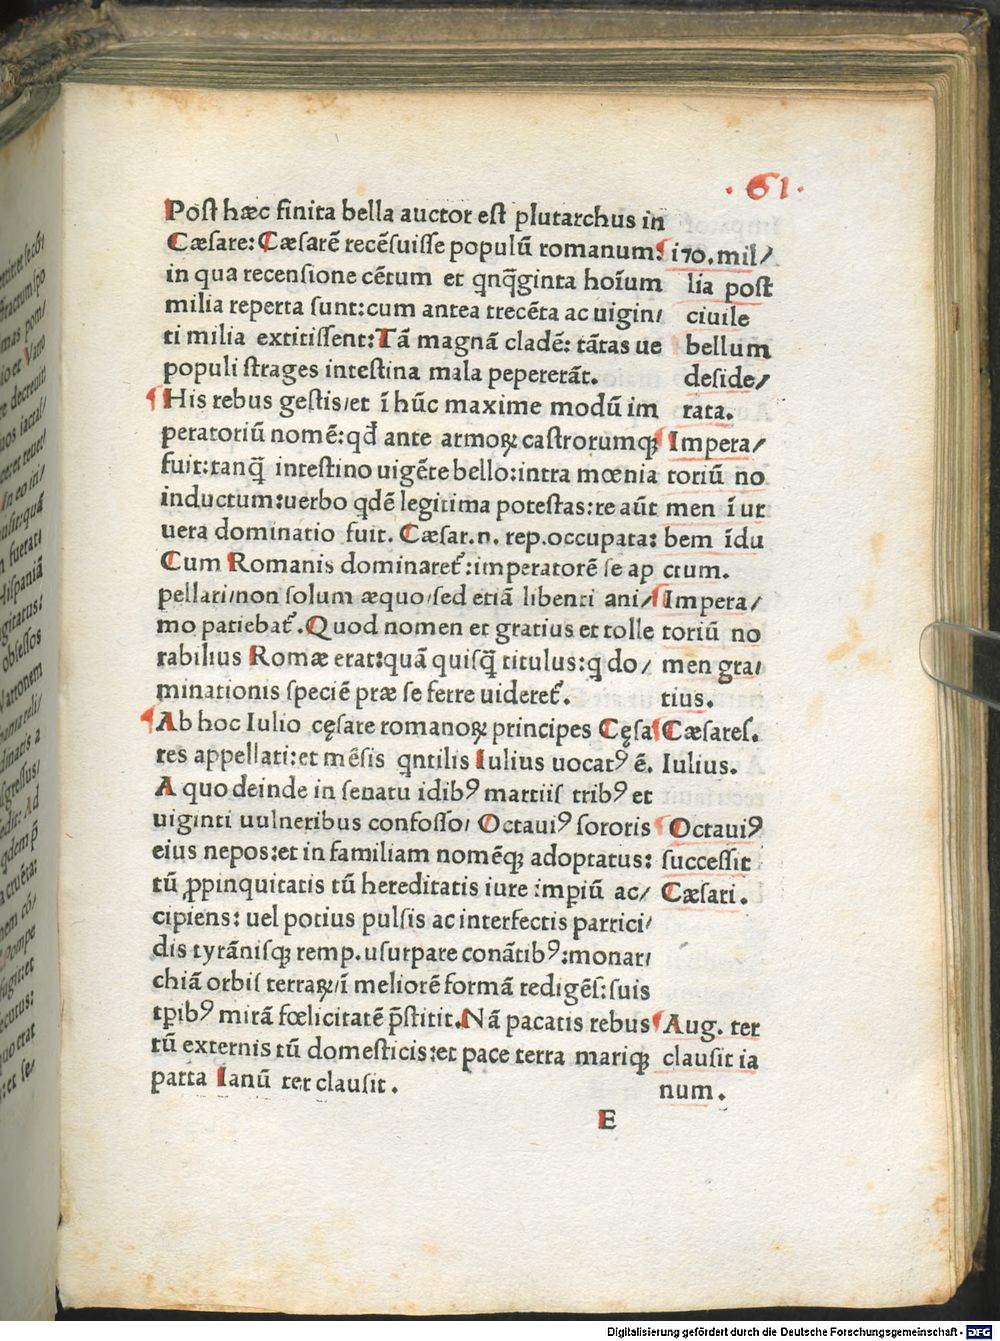 .61.
Post hæc finita bella auctor est plutarchus in
Cæsare: Cæsarē recēsuisse populū romanum:
in qua recensione cētum et qnq̄ginta hoīum
milia reperta sunt: cum antea trecēta ac uigin/
ti milia extitissent: Tā magnā cladē: tātas ue
populi strages intestina mala pepererāt.
His rebus gestis/et ī hūc maxime modū im
peratoriū nomē: qđ ante armoꝝ castrorumqꝫ
fuit: tanq̄ intestino uigēte bello: intra mœnia
inductum: uerbo qdē legitima potestas: re aūt
uera dominatio fuit. Cæsar .n. rep. occupata:
Cum Romanis dominaret᷑: imperatorē se ap
pellari/non solum æquo/sed etiā libenti ani/
mo patiebat᷑. Quod nomen et gratius et tolle
rabilius Romæ erat: quā quisq̄ titulus: q do/
minationis speciē præ se ferre uideret᷑.
Ab hoc Iulio cęsare romanoꝝ principes Cęsa
res appellati: et mēsis qntilis Iulius uocatꝰ ē.
A quo deinde in senatu idibꝰ martiis tribꝰ et
uiginti uulneribus confosso/ Octauiꝰ sororis
eius nepos: et in familiam nomēqꝫ adoptatus:
tū ꝓpinquitatis tū hereditatis iure impiū ac/
cipiens: uel potius pulsis ac interfectis parrici/
dis tyrānisqꝫ remp. usurpare conātibꝰ: monar/
chiā orbis terraꝝ/ī meliorē formā redigēs: suis
tꝑibꝰ mirā fœlicitatē p̄stitit. Nā pacatis rebus
tū externis tū domesticis: et pace terra mariqꝫ
parta Ianū ter clausit.
170. mil/
lia post
ciuile
bellum
deside/
rata.
Impera/
toriū no
men ī ur
bem īdu
ctum.
Impera/
toriū no
men gra/
tius.
Cæsares.
Iulius.
Octauiꝰ
successit
Cæsari.
Aug. ter
clausit ia
num.
E
Digitalisierung gefördert durch die Deutsche Forschungsgemeinschaft - DFG